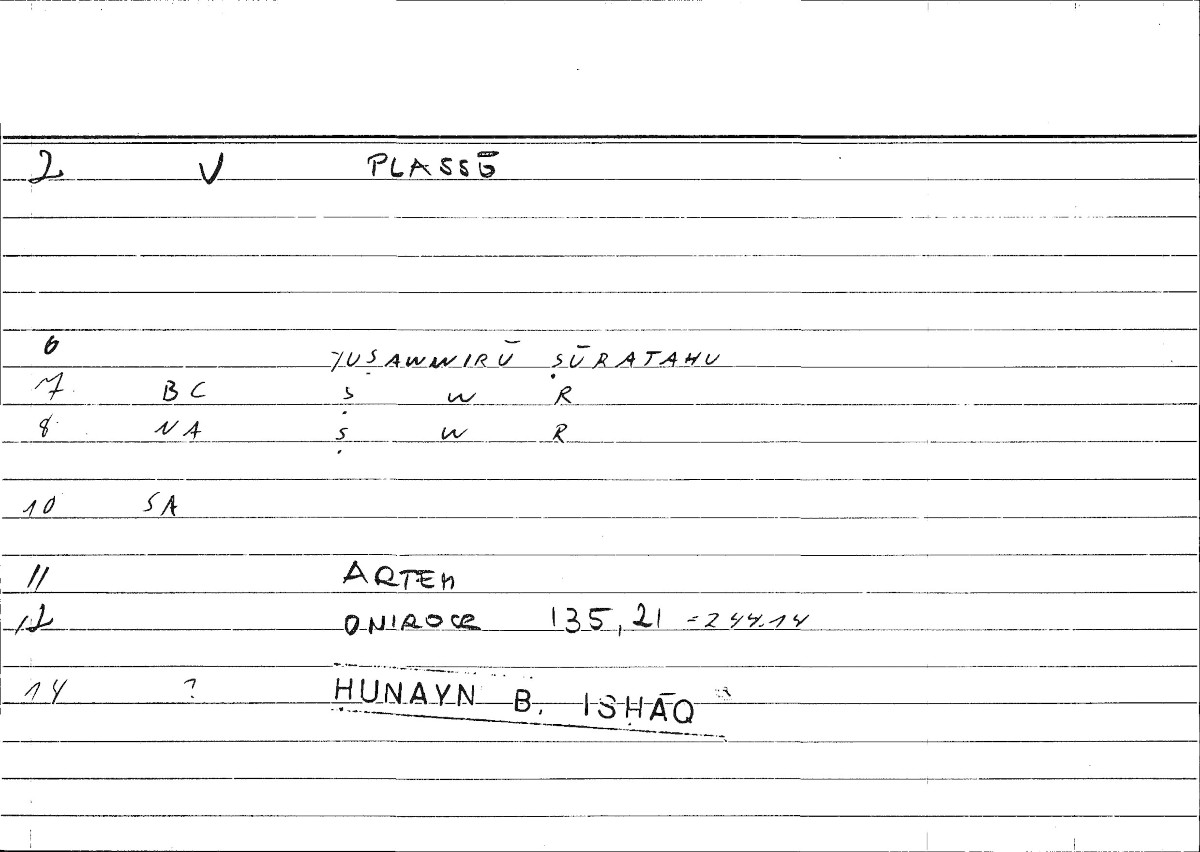 2 V PLASSŌ
6 YUṢAWWIRŪ ṢŪRATAHU
7 BC Ṣ W R
8 NA Ṣ W R
10 SA
11 ARTEM
12 ONIROCR 135,21 =244.14
14 ? ḤUNAYN B. ISḤĀQ